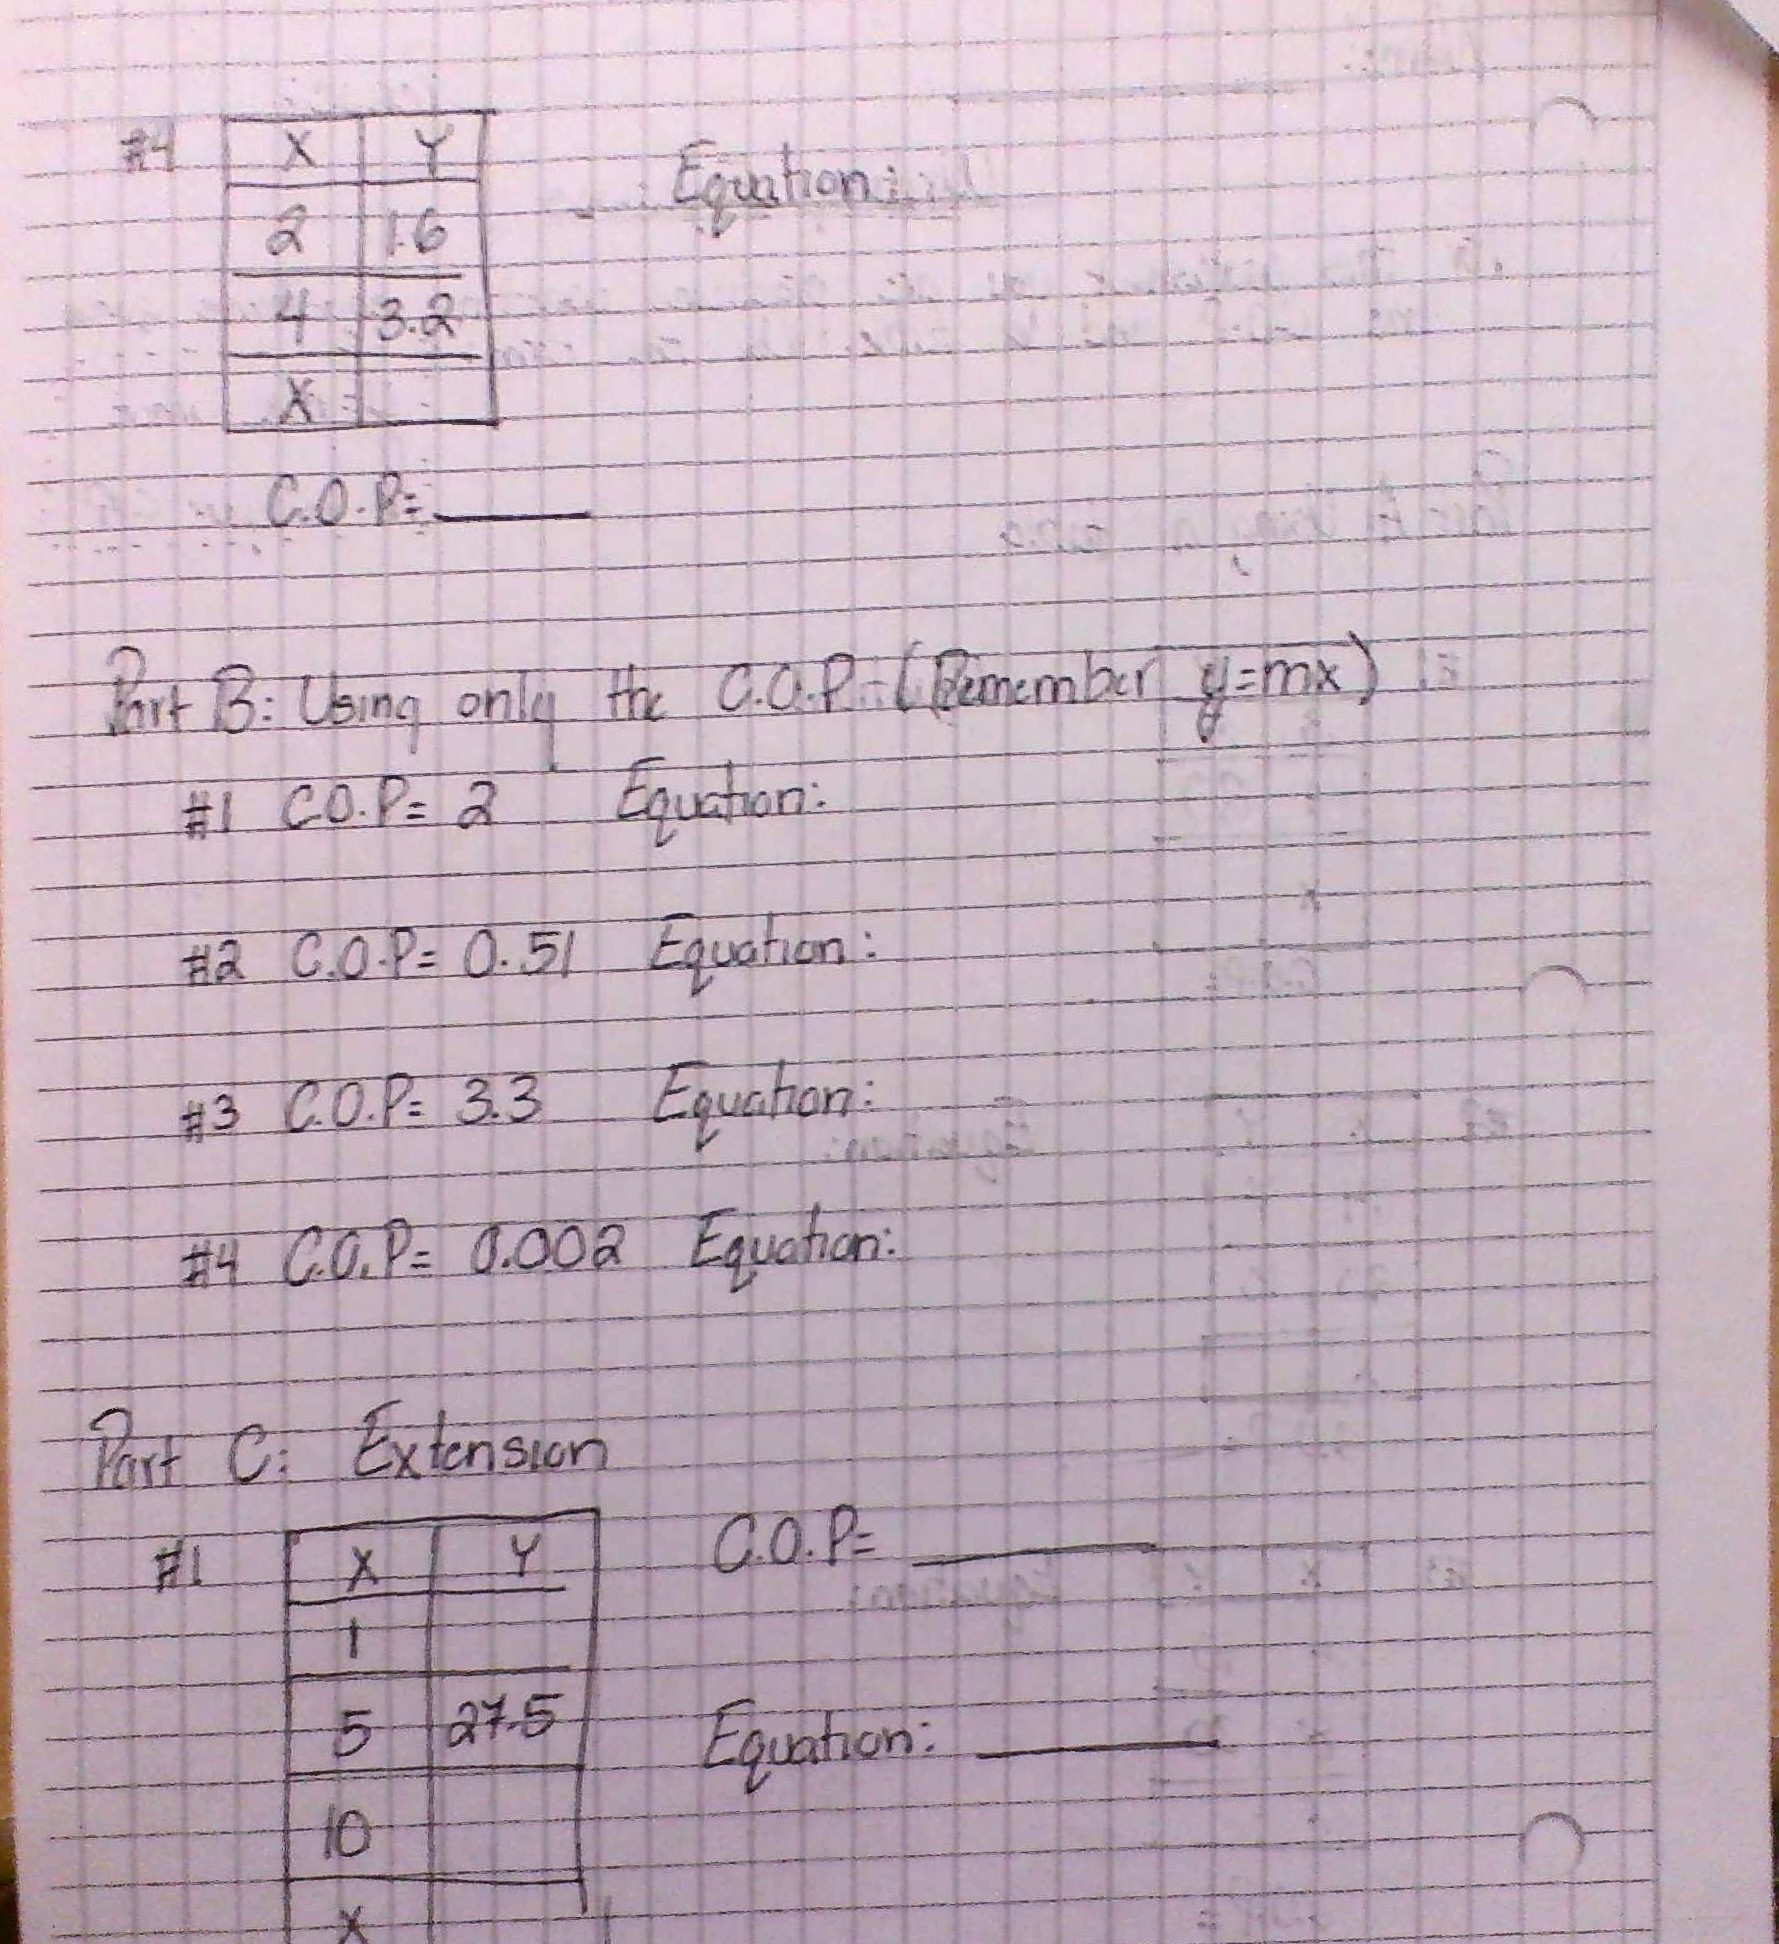 #4 X Y Equation:
2 1.6
4 3.2
X
C.O.P=
Part B: Using only the C.O.P - (Remember y=mx)
#1 C.O.P= 2 Equation:
#2 C.O.P= 0.51 Equation:
#3 C.O.P= 3.3 Equation:
#4 C.O.P= 0.002 Equation:
Part C: Extension
#1 X Y C.O.P=
1
5 27.5 Equation:
10
X